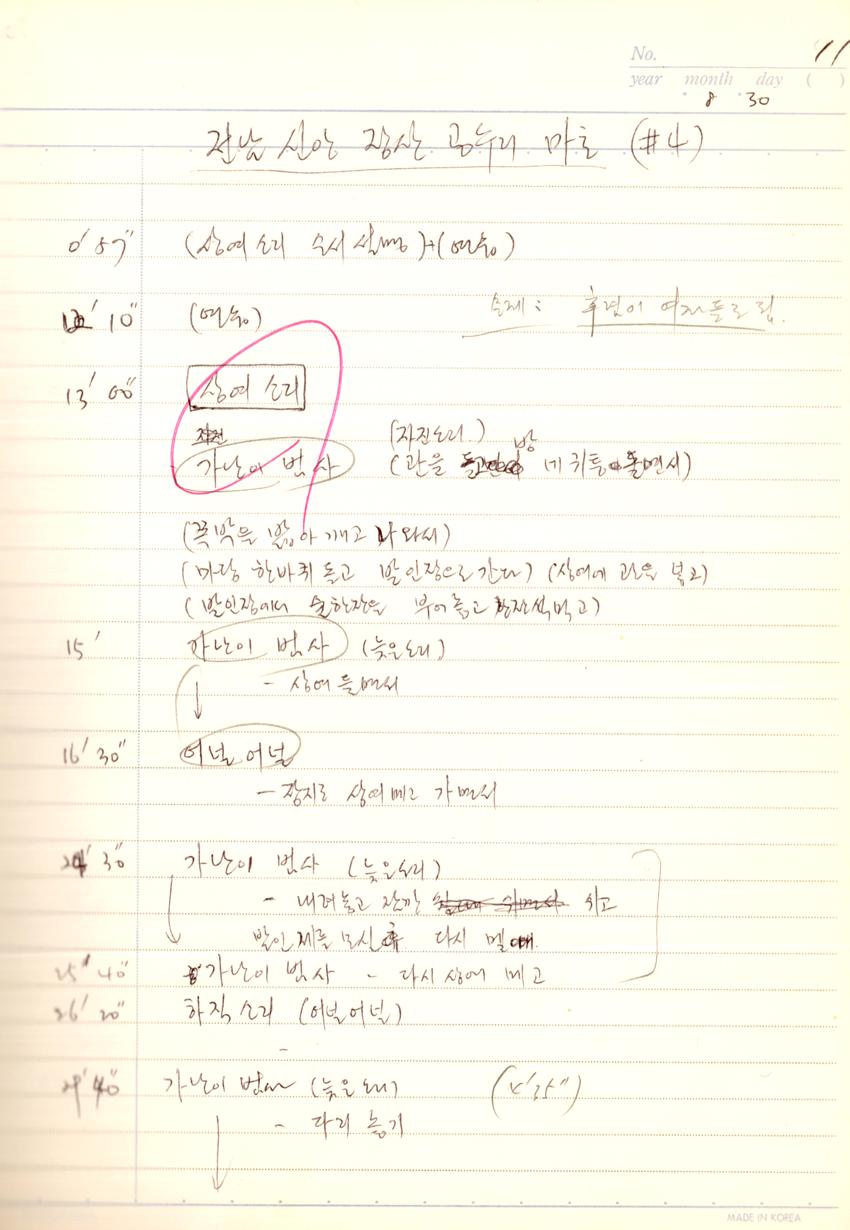 No. 11
year month day ( )
8 30
전남 신안 장산 공수리 마초 (#4)
0' 57" (상여 소리 순서 설명)+(연습)
12' 10" (연습) 숙제: 후렴이 여자들로 됨.
13' 00" 상여 소리
(자진소리)
가난이 범사 (관을 들고 방 네 귀퉁이 돌면서)
(쪽박을 밟아 깨고 나와서)
(마당 한바퀴 돌고 발인장으로 간다) (상여에 관을 넣고)
(발인장에서 술한잔을 부어놓고 한잔씩 먹고)
15' 가난이 범사 (늦은소리)
- 상여 들면서
16' 30" 어널 어널
- 장지로 상여 메고 가면서
24' 30" 가난이 범사 (늦은소리)
- 내려놓고 잠깐 쉬고
발인제를 모신 후 다시 멜 때
25' 40" 가난이 범사 - 다시 상여 메고
26' 20" 하직 소리 (어널어널)
29' 40" 가난이 범사 (늦은소리) (4' 35")
- 다리 놓기
MADE IN KOREA